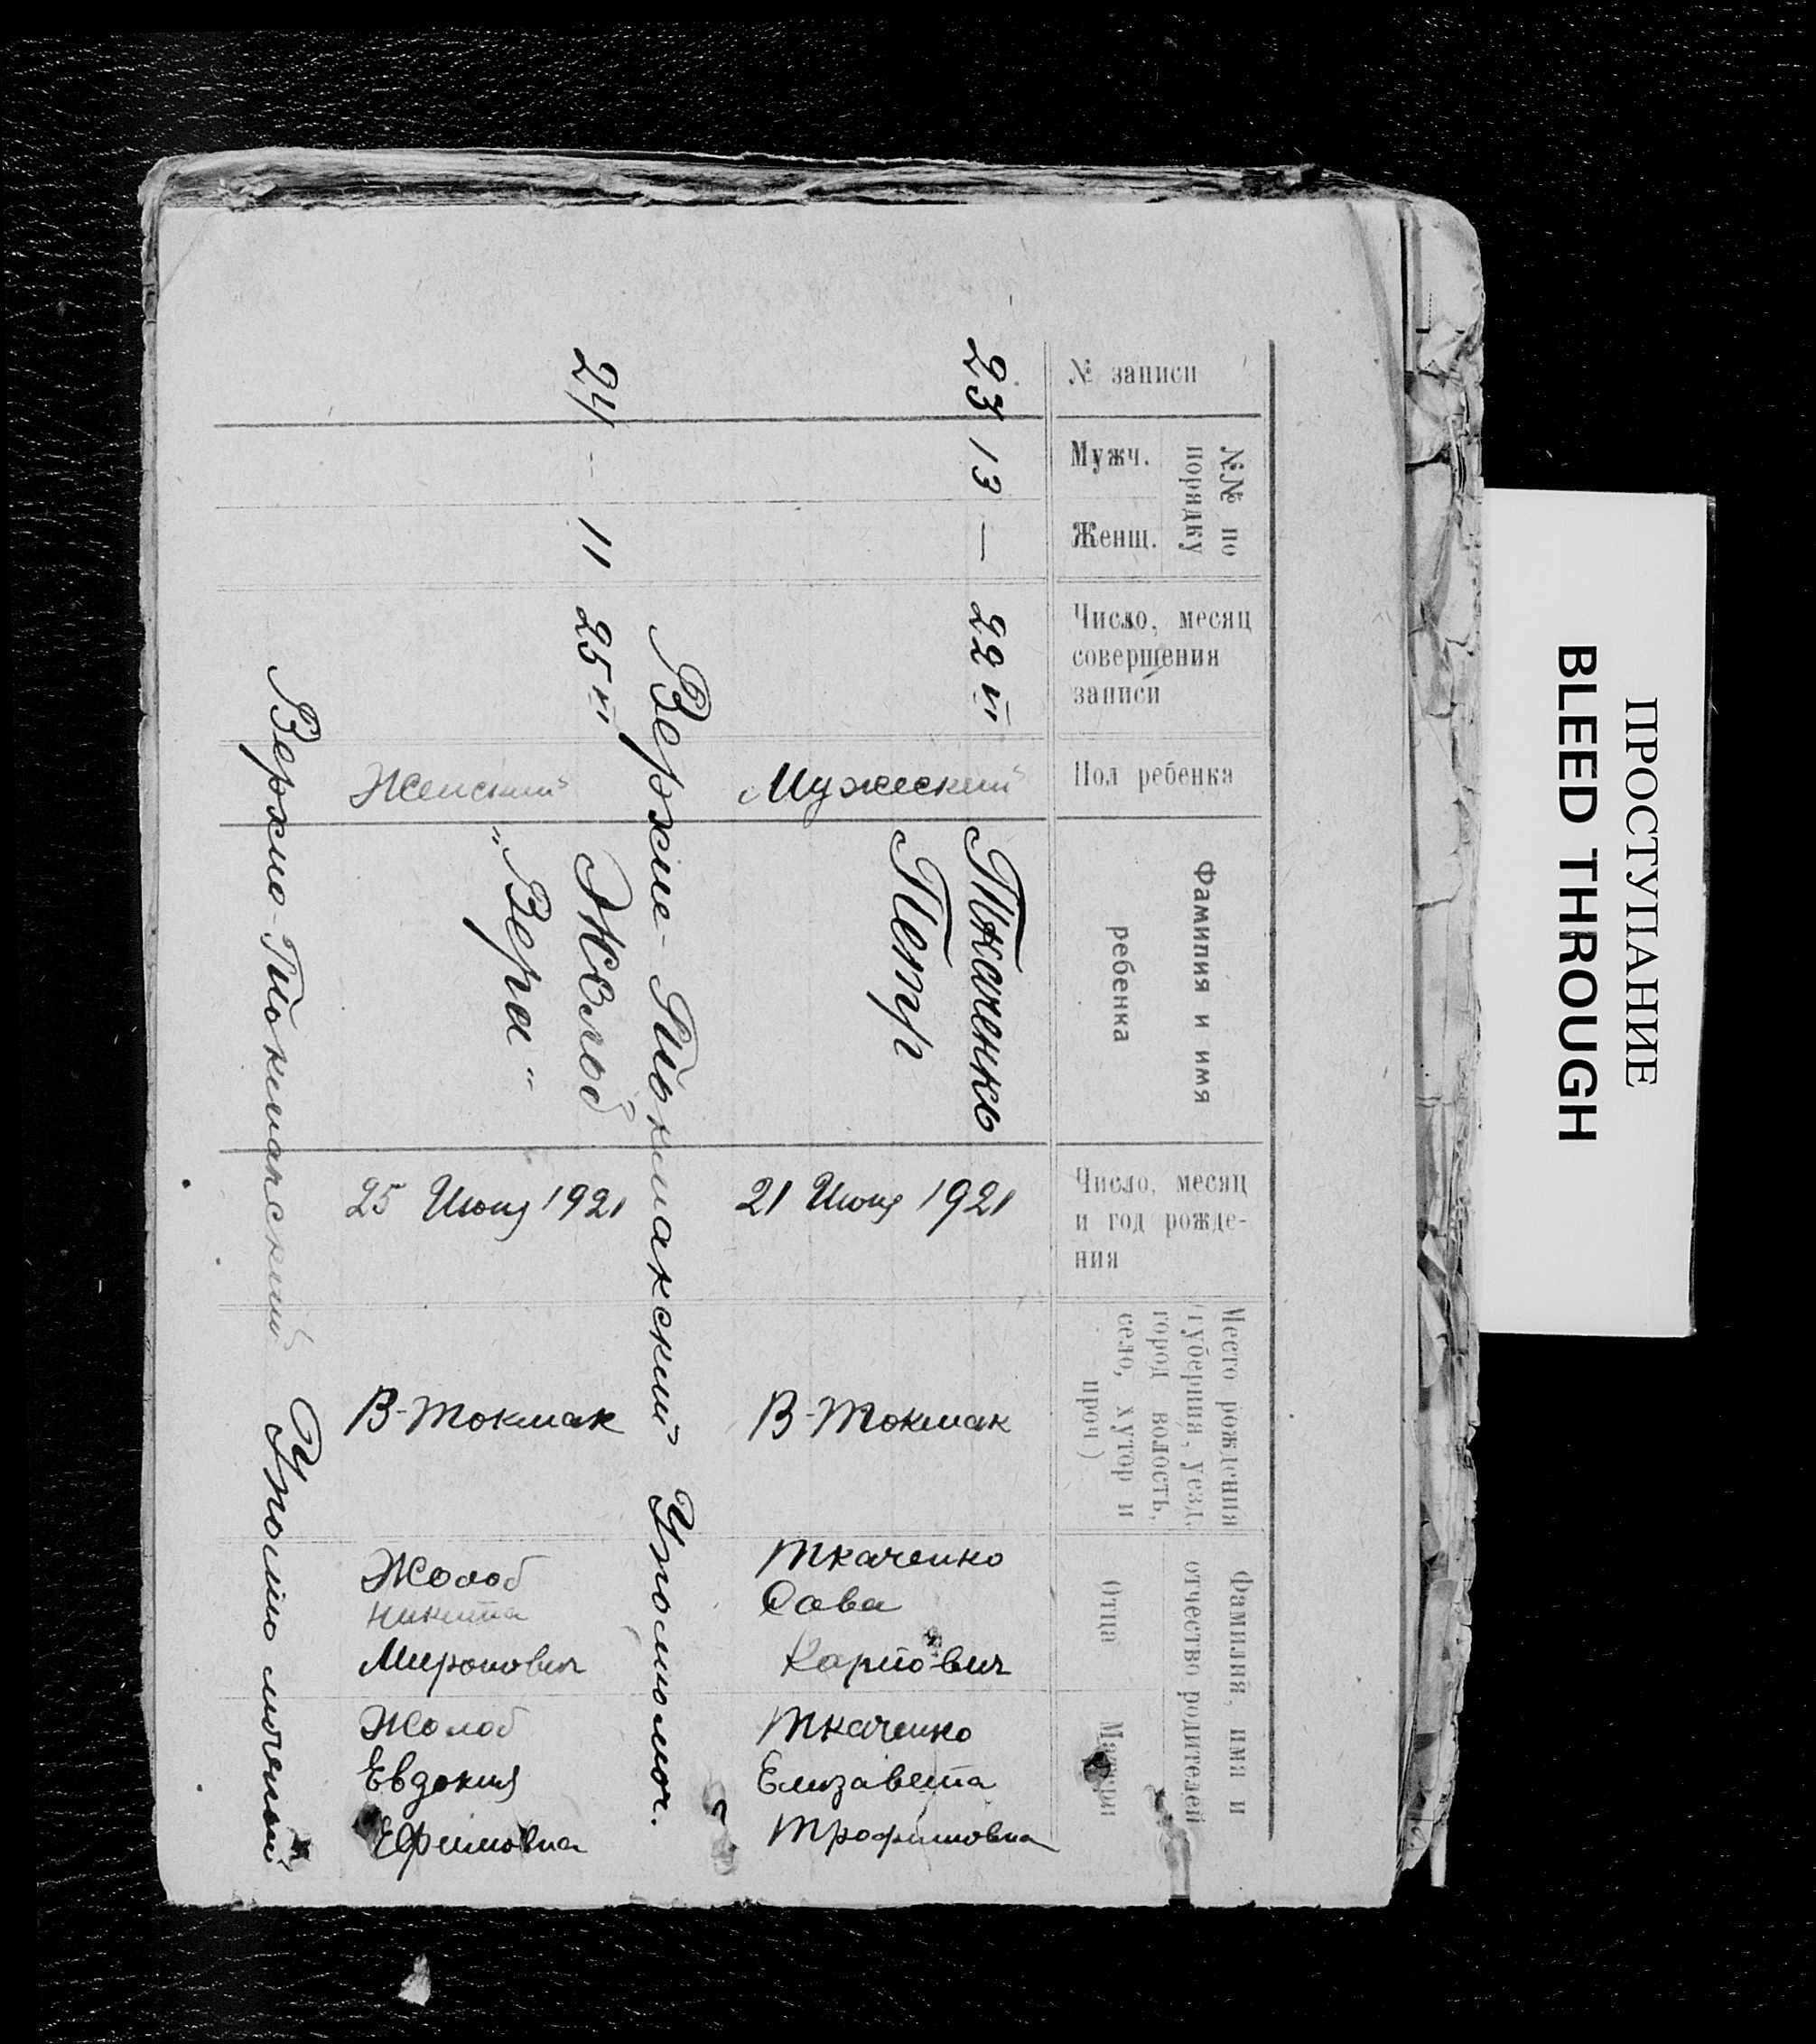 № записи
№№ по
порядку
Мужч.
Женщ.
Число, месяц
совершения
записи
Пол ребенка
Фамилия и имя
ребенка
Число, месяц
и год рожде-
ния
Место рождения
(губерния, уезд,
город волость,
село, хутор и
проч)
Фамилия, имя и
отчество родителей
Отца
Матери
23
13
—
22 VI
Мужеский
Ткаченко
Петр
21 Июня 1921
В-Токмак
Ткаченко
Сава
Карпович
Ткаченко
Елизавета
Трофимовна
Верхне-Токмакский Уполномоч.
24
-
11
25 VI
Женский
Жолоб
„Вера"
25 Июня 1921
В-Токмак
Жолоб
Никита
Миронович
Жолоб
Евдокия
Ефимовна
Верхне-Токмакский Уполномоченый
ПРОСТУПАНИЕ
BLEED THROUGH